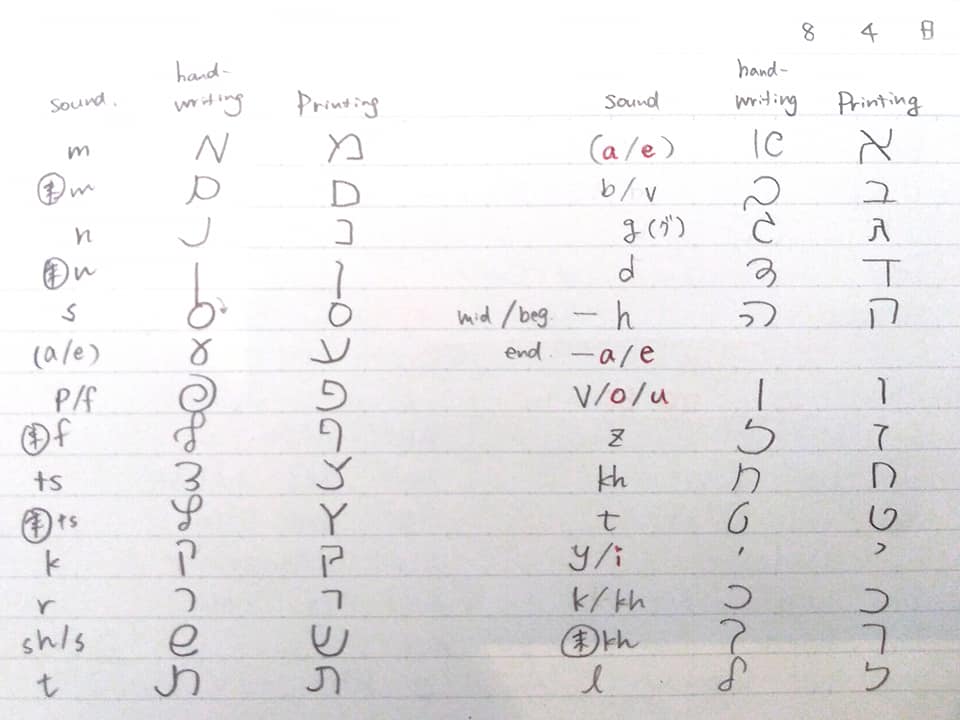 8 4 日
sound. hand-writing Printing
m מ מ
末m ם ם
n נ נ
末n ן ן
s ס ס
(a/e) ע ע
p/f פ פ
末f ף ף
ts צ צ
末ts ץ ץ
k ק ק
r ר ר
sh/s ש ש
t ת ת
sound hand-writing Printing
(a/e) א א
b/v ב ב
g(グ) ג ג
d ד ד
mid/beg. — h ה ה
end. — a/e
V/o/u ו ו
z ז ז
kh ח ח
t ט ט
y/i י י
k/kh כ כ
末kh ך ך
l ל ל